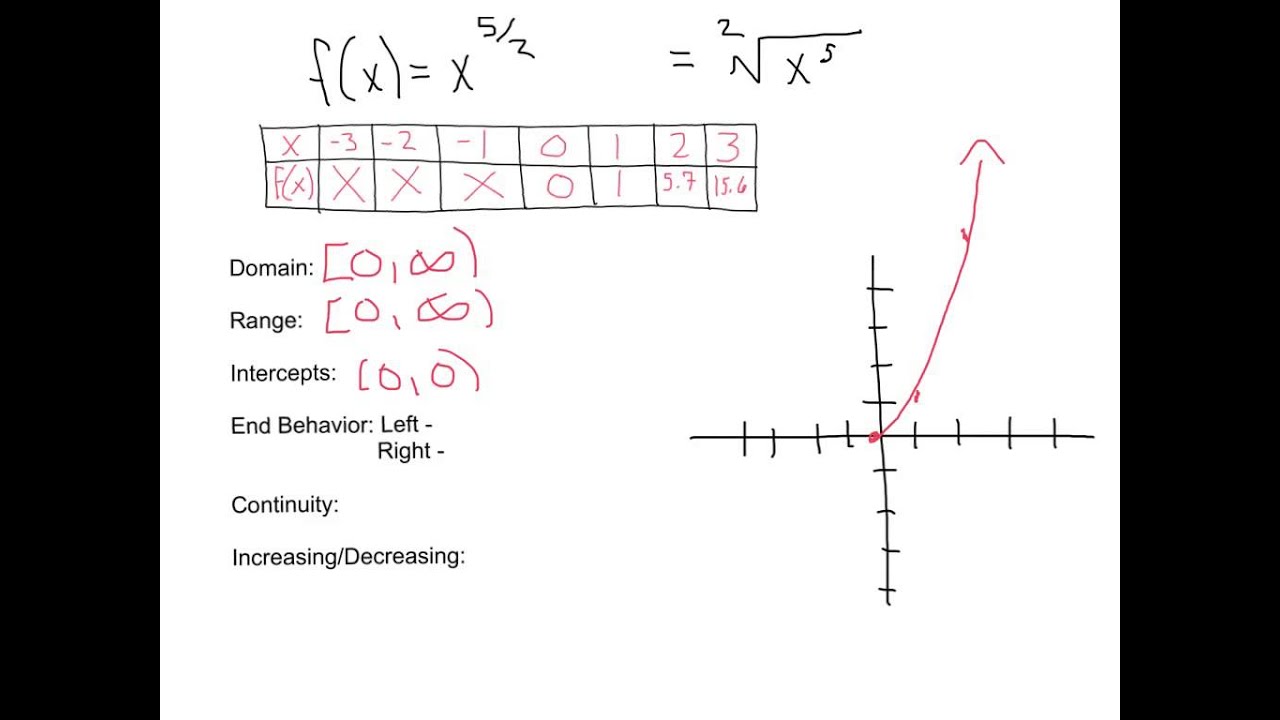 f(x) = x^{5/2} = \sqrt[2]{x^5}
x -3 -2 -1 0 1 2 3
f(x) X X X 0 1 5.7 15.6
Domain: [0, ∞)
Range: [0, ∞)
Intercepts: (0, 0)
End Behavior: Left -
Right -
Continuity:
Increasing/Decreasing: